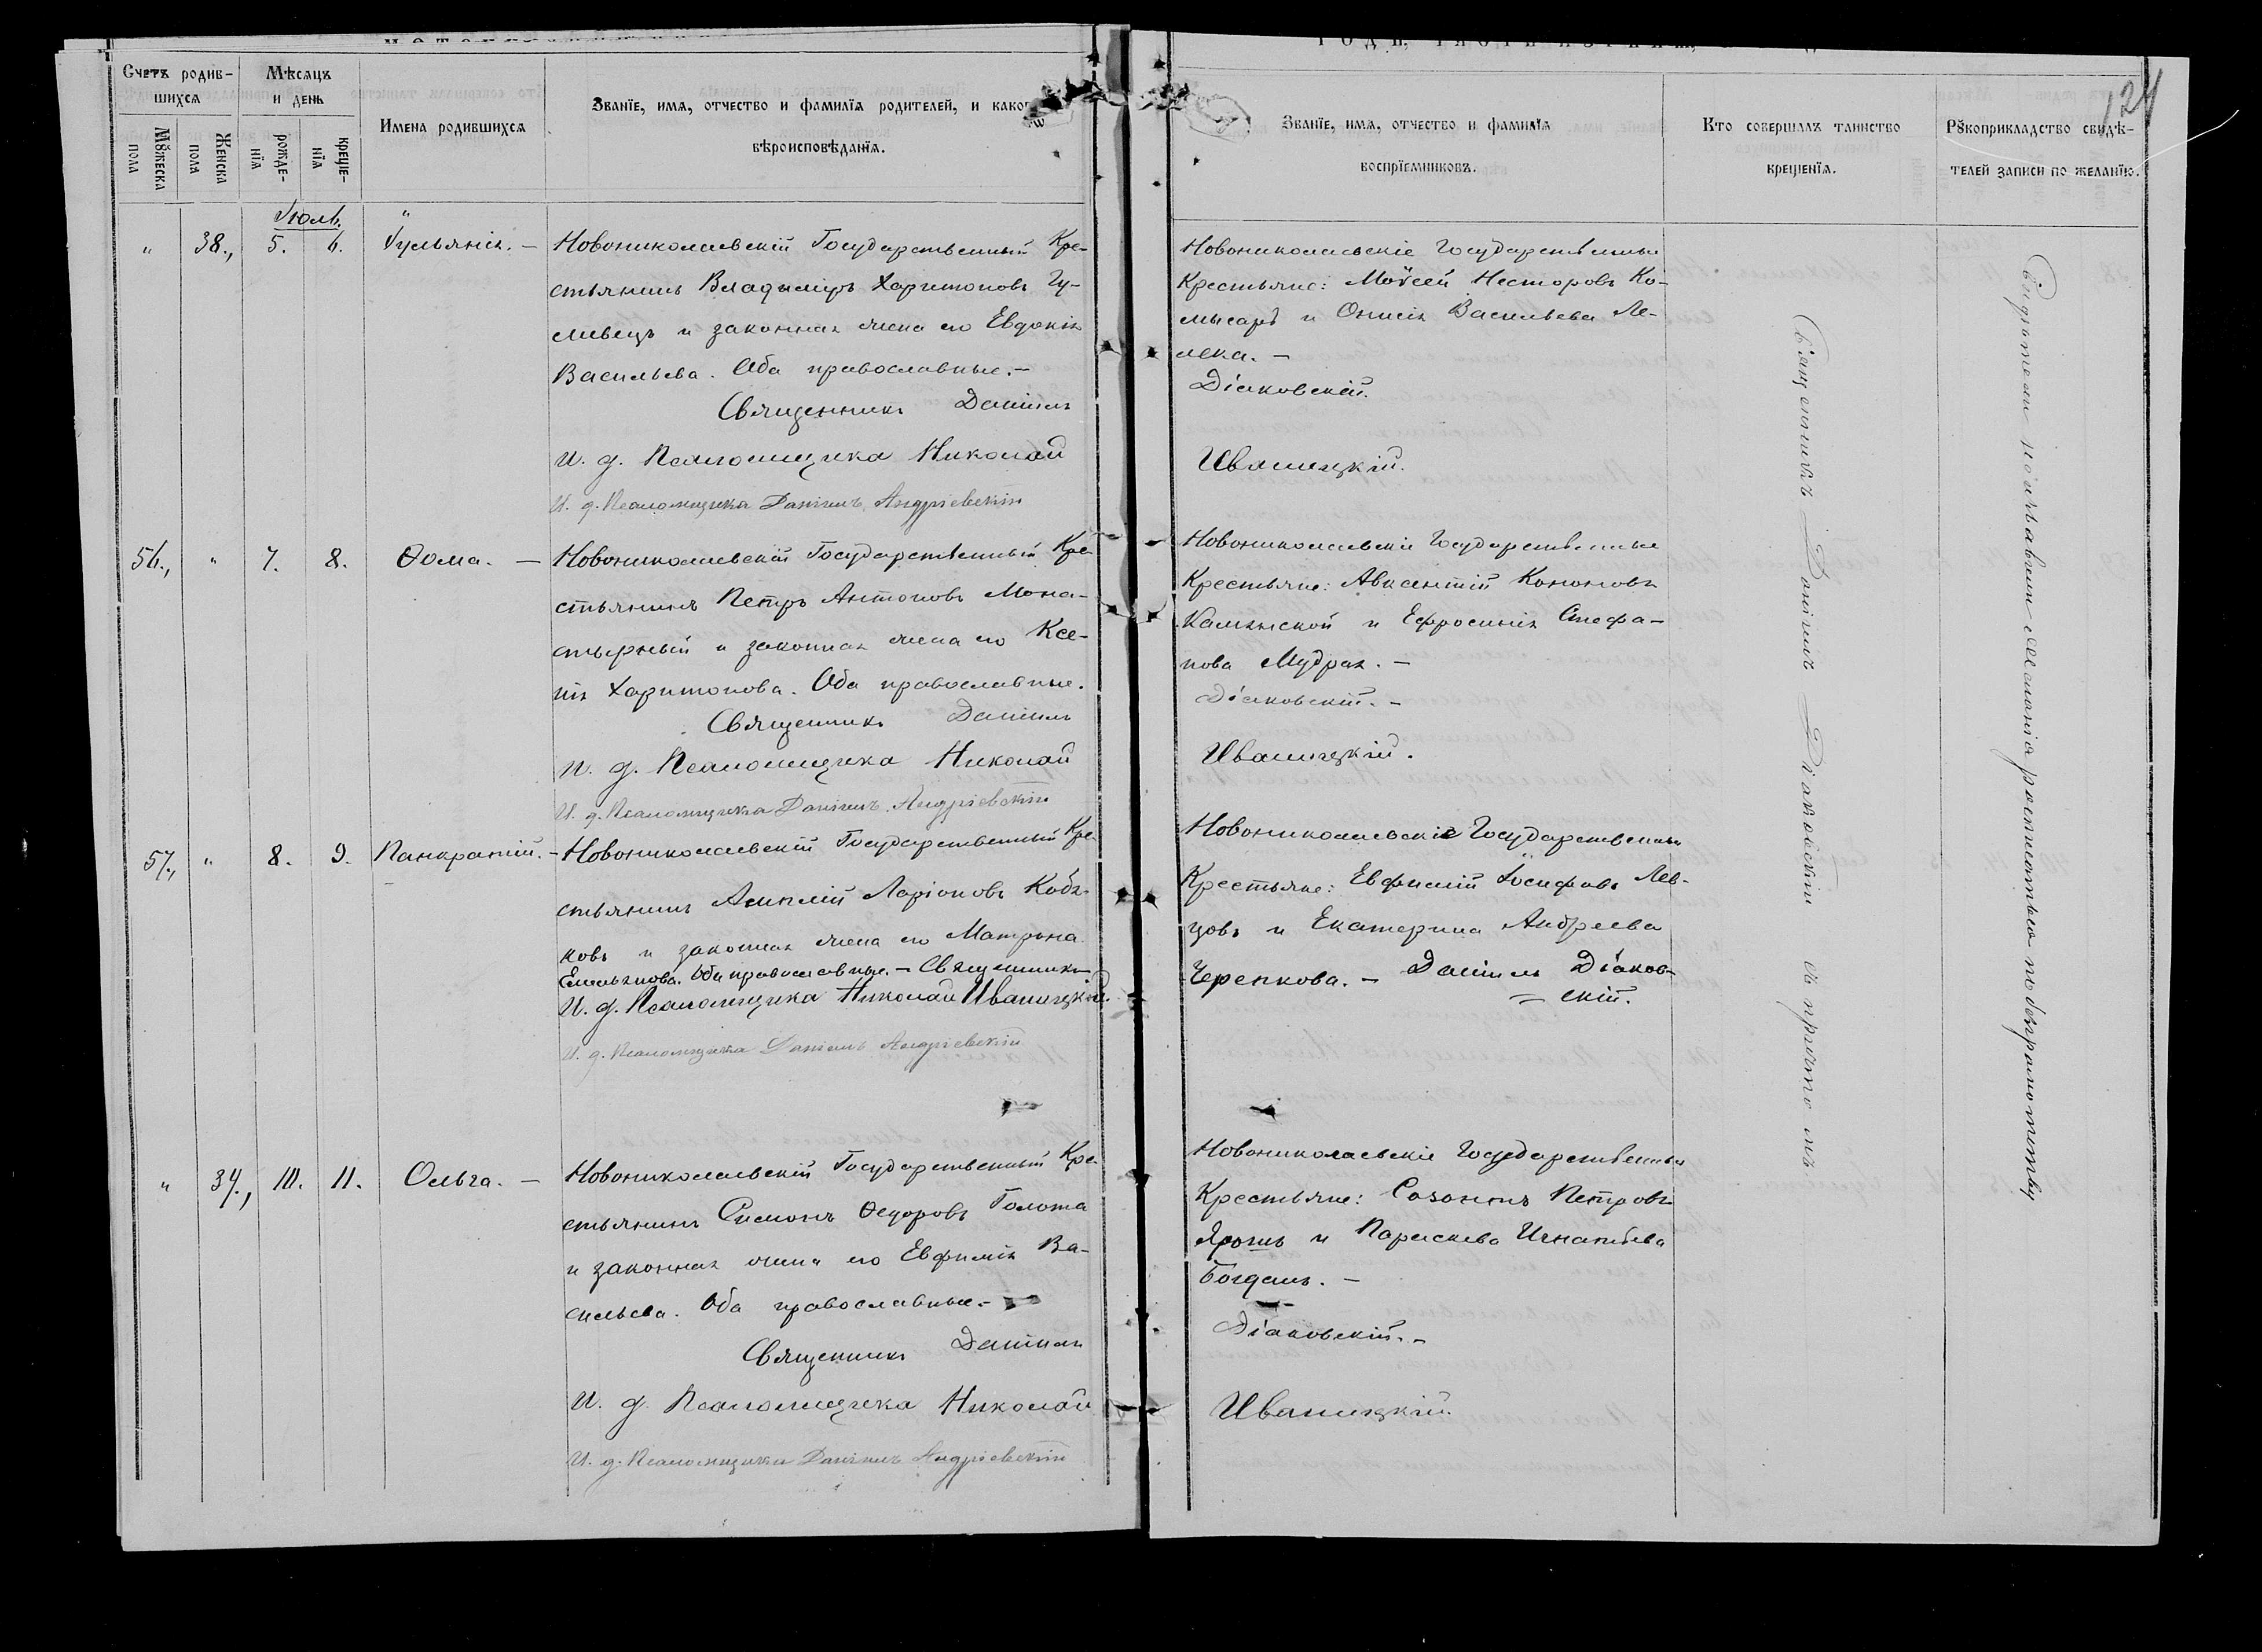 124
Счетъ родив-
шихся
Мѣсяцъ
и день
Мꙋжеска
пола
Женска
пола
рожде-
нїя
креще-
нїя
Имена родившихся
Званїе, имя, отчество и фамилїя родителей, и како
вѣроисповѣданїя.
Званїе, имя, отчество и фамилїя
воспрїемниковъ.
Кто совершалъ таинство
крещенїя.
Рꙋкоприкладство свидѣ-
телей записи по желанїю.
Іюль.
" 38., 5. 6. Іульянія. —
Новониколаевскій Государственный Кре-
стьянинъ Владиміръ Харитоновъ Гу-
ливецъ и законная жена его Евдокія
Васильева. Оба православные. —
Священникъ Даніилъ
И. д. Псаломщика Николай
И. д. Псаломщика Даніилъ Андріевскій
Новониколаевскіе Государственные
Крестьяне: Моѵсей Несторовъ Ко-
мысаръ и Онисія Васильева Ле-
лека. —
Діаковскій.
Иваницкій.
56., " 7. 8. Ѳома. —
Новониколаевскій Государственный Кре-
стьянинъ Петръ Антоновъ Мона-
стырный и законная жена его Ксе-
нія Харитонова. Оба православные.
Священникъ Даніилъ
И. д. Псаломщика Николай
И. д. Псаломщика Даніилъ Андріевскій
Новониколаевскіе Государственные
Крестьяне: Авксентій Кононовъ
Каминской и Ефросинія Стефа-
нова Мудрая. —
Діаковскій. —
Иваницкій.
57., " 8. 9. Панкратій. —
Новониколаевскій Государственный Кре-
стьянинъ Амплій Ларіоновъ Кобз-
ковъ и законная жена его Матрона
Емельянова. Оба православные. — Священникъ
И. д. Псаломщика Николай Иваницкій.
И. д. Псаломщика Даніилъ Андріевскій
Новониколаевскіе Государственные
Крестьяне: Евфимій Іосифовъ Лев-
цовъ и Екатерина Андреева
Черепкова. — Даніилъ Діаков-
скій.
" 39., 10. 11. Ольга. —
Новониколаевскій Государственный Кре-
стьянинъ Симонъ Ѳедоровъ Голота
и законная жена его Евфимія Ва-
сильева. Оба православные. —
Священникъ Даніилъ
И. д. Псаломщика Николай
И. д. Псаломщика Даніилъ Андріевскій
Новониколаевскіе Государственные
Крестьяне: Созонтъ Петровъ
Ярошъ и Параскева Игнатьева
Богданъ. —
Діаковскій. —
Иваницкій.
Священникъ Даніилъ Діаковскій съ причтомъ
Свидѣтели по неграмотству